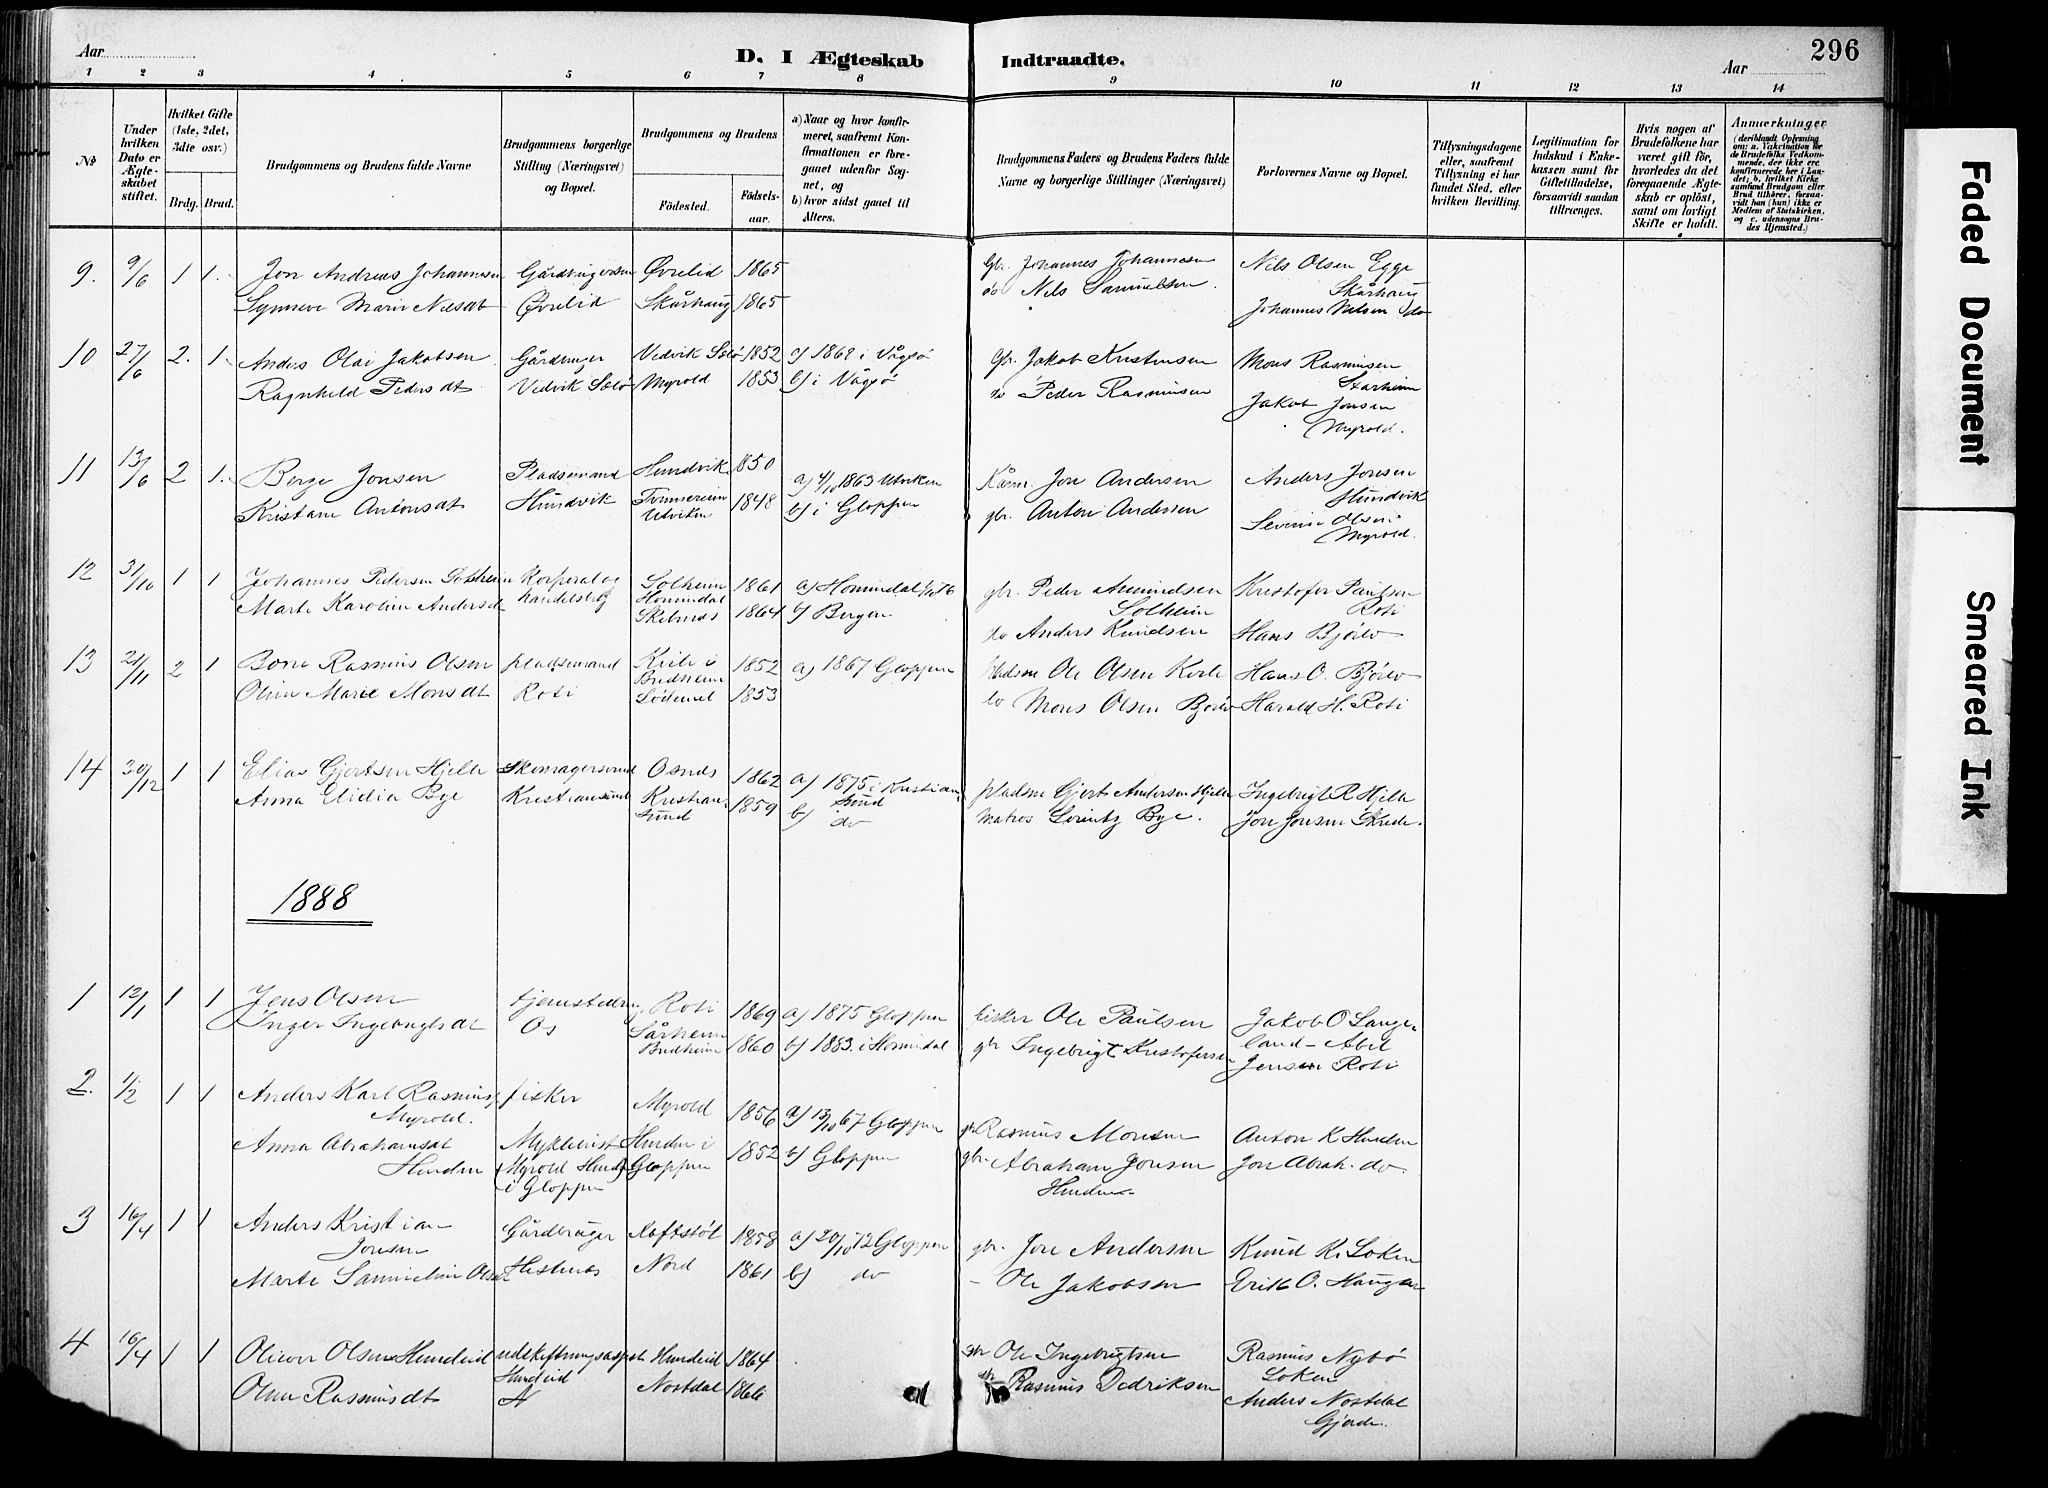 Aar
D. I Ægteskab Indtraadte.
Aar
296
1 2 3 4 5 6 7 8 9 10 11 12 13 14
No
Under hvilken Dato er Ægteskabet stiftet.
Hvilket Gifte (1ste, 2det, 3die osv.)
Brdg. Brud.
Brudgommens og Brudens fulde Navne
Brudgommens borgerlige Stilling (Næringsvei) og Bopæl.
Brudgommens og Brudens
Fødested.
Fødselsaar.
a) Naar og hvor konfirmeret, saafremt Konfirmationen er foregaaet udenfor Sognet, og
b) hvor sidst gaaet til Alters.
Brudgommens Faders og Brudens Faders fulde Navne og borgerlige Stillinger (Næringsvei)
Forlovernes Navne og Bopæl.
Tillysningsdagene eller, saafremt Tillysning ei har fundet Sted, efter hvilken Bevilling.
Legitimation for Indskud i Enkekassen samt for Giftetilladelse, forsaavidt saadan tiltrænges.
Hvis nogen af Brudefolkene har været gift før, hvorledes da det foregaaende Ægteskab er opløst, samt om lovligt Skifte er holdt.
Anmærkninger
(deriblandt Oplysning om: a. Vakcination for de Brudefolks Vedkommende, der ikke ere konfirmerede her i Landet; b. hvilket Kirkesamfund Brudgom eller Brud tilhører, forsaavidt han (hun) ikke er Medlem af Statskirken, og c. udensogns Brudes Hjemsted.)
9. 9/6 1 1. Jon Andreas Johannesen Gårdbrugersøn Øvrelid 1865 Gbr. Johannes Johannesen Nils Olsen Egge
Synneve Marie Nilsdt Øvrelid Skårhaug 1865 do Nils Samuelsen. Skårhaug
Johannes Nilsen do
10 27/6 2. 1. Anders Olai Jakobsen Gårdbruger Vedvik Selø 1852 a) 1868 i Vågsø gbr. Jakob Kristensen Mons Rasmusen
Ragnhild Pedersdt. Vedvik Selø Myrold 1853 b) i Vågsø do Peder Rasmusen Starheim
Jakob Jonsen
Myrold.
11 13/6 2 1. Berge Jonsen Pladsemand Hundvik 1850 a) 4/10 1863 Utviken Kårm. Jon Andersen Anders Jonsen
Kristane Antonsdt Hundvik Utviken 1848 b) i Gloppen gbr. Anton Andersen Hundvik
Severin Olsen
Myrold.
12 31/10 1 1 Johannes Pedersen Solheim Korporal og Solheim 1861 a) Hornindal gbr. Peder Amundsen Kristofer Paulsen
Marte Karoline Andersdt Hornindal 1864 b) Bergen Solheim Roti
do Anders Knudsen Hans Bjørlo
13 21/11 2 1 Rasmus Olsen pladsemand i 1852 a) 1867 Gloppen pladsm Ole Olsen Hans O. Bjørlo
Marie Monsdt Roti 1853 Mons Olsen Bjørlo Harald H. Roti
14 30/12 1 1 Elias Gjertsen Hjelle Skomagersvend Osnes 1862 a) 1875 i Kristian- pladsm Gjert Andersen Hjelle Ingebrigt R Hjelle
Anna Elidia Bye Kristiansund Kristian- 1859 sund Matros Bye. Jon Jonsen Skrede.
sund b) do
1888
1 12/1 1 1 Jens Olsen Roti 1869 a) 1875 Gloppen fisker Ole Paulsen Jakob O Lange-
Inger Ingebrigtsdt Os 1860 b) 1883 i Hornindal gbr Ingebrigt Kristofersen land - Abel
Jensen Roti
2. 1/2 1 1 Anders Karl Rasmus. fisker Myrold 1856 a) 13/10 67 Gloppen gbr Rasmus Monsen Anton K Hunden
Myrold.
Anna Abrahamsdt Myklebust Hunden i 1852 b) Gloppen gbr. Abraham Jonsen Jon Abrah. do
Hunden Gloppen Hunden
i Gloppen
3 16/4 1 1 Anders Kristian Gårdbruger 1858 a) 20/10 72 Gloppen gbr. Jon Andersen Knud K. Loken
Jonsen
Marte Samueline Hestenes Nord 1861 b) do - Ole Jakobsen Erik O. Haugen
4 16/4 1 1 Oliver Olsen Hundeid Hundeid 1864 Ole Ingebrigtsen Rasmus Nybø
Hundeid Loken
Oline Rasmusdt Nostdal 1866 Rasmus Dedriksen Anders Nostdal
Gjorde.
Faded Document
Smeared Ink